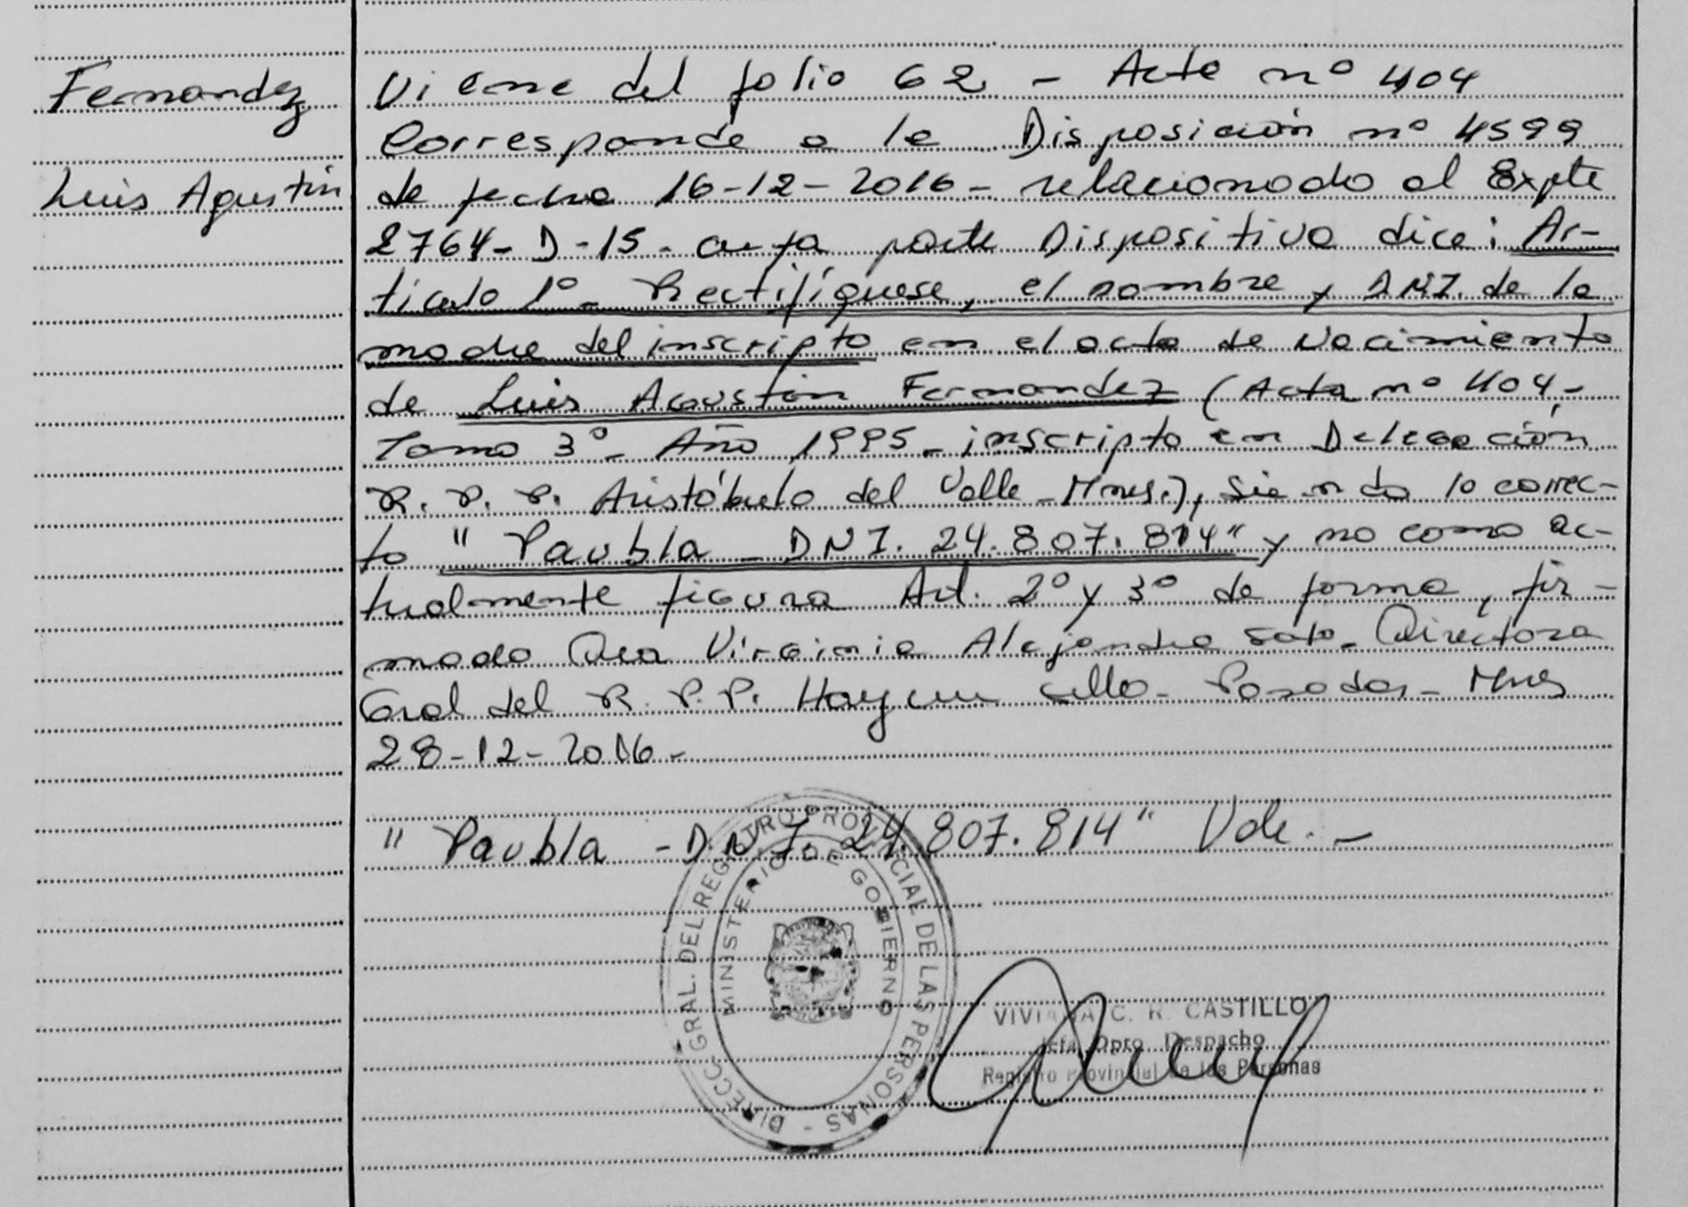 Fernandez
Luis Agustin
Viene del folio 62 - Acta nº 404
Corresponde a la Disposición nº 4599
de fecha 16-12-2016- relacionado al Expte
2764-D-15- cuya parte Dispositiva dice: Ar-
tículo 1º- Rectifíquese, el nombre y DNI. de la
madre del inscripto en el acta de Nacimiento
de Luis Agustin Fernandez (Acta nº 404,-
Tomo 3º- Año 1995- inscripto en Delegación
R. P. P. Aristóbulo del Valle - Mnes.), siendo lo correc-
to " Paubla - DNI. 24.807.814" y no como ac-
tualmente figura Art. 2º y 3º de forma, fir-
mado Dra Virginia Alejandra Soto- Directora
Gral del R. P. P. Hay un sello- Posadas- Mnes
28-12-2016-
" Paubla - DNI. 24.807.814" Vale. -
DIRECC. GRAL. DEL REGISTRO PROVINCIAL DE LAS PERSONAS -
MINISTERIO DE GOBIERNO
VIVIANA C. R. CASTILLO
Jefa Dpto. Despacho
Registro Provincial de las Personas